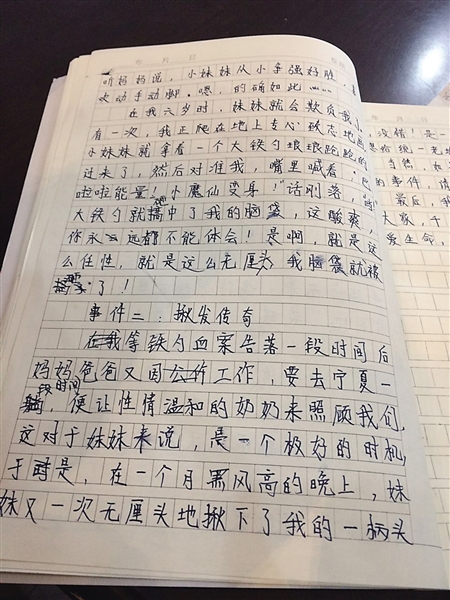 年 月 日
听妈妈说，小妹妹从小争强好胜，喜
欢动手动脚。嗯，的确如此……
在我六岁时，妹妹就会欺负我
有一次，我正爬在地上专心致志地画
小妹妹就拿着一个大铁勺踉踉跄跄的
过来了，然后对准我，嘴里喊着：巴
啦啦能量！小魔仙变身！"话刚落，
大铁勺就搞中了我的脑袋，这酸爽，
你永远都不能体会！是啊，就是这
么任性，就是这么无厘头，我脑袋就被
了！
事件二：揪发传奇
在我等铁勺血案告落一段时间后
妈妈爸爸又因公幹工作，要去宁夏一
段时间，便让性情温和的奶奶来照顾我们，
这对于妹妹来说，是一个极好的时机，
于是，在一个月黑风高的晚上，妹
妹又一次无厘头地揪下了我的一柄头
没错！是一
当然，如
的事件，请
最后，我
大家，千
爱生命，